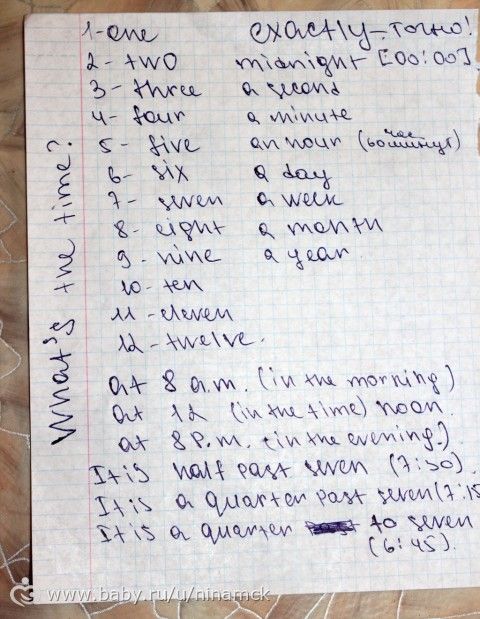 What's the time?
1 - one exactly - точно!
2 - two midnight [00:00]
3 - three a second
4 - four a minute
5 - five an hour (час 60 минут)
6 - six a day
7 - seven a week
8 - eight a month
9 - nine a year.
10 - ten
11 - eleven
12 - twelve.
at 8 a.m. (in the morning)
at 12 (in the time) noon.
at 8 P.m. (in the evening.)
It is half past seven (7:30).
It is a quarter past seven (7:15
It is a quarter to seven
(6:45).
www.baby.ru/u/ninamck